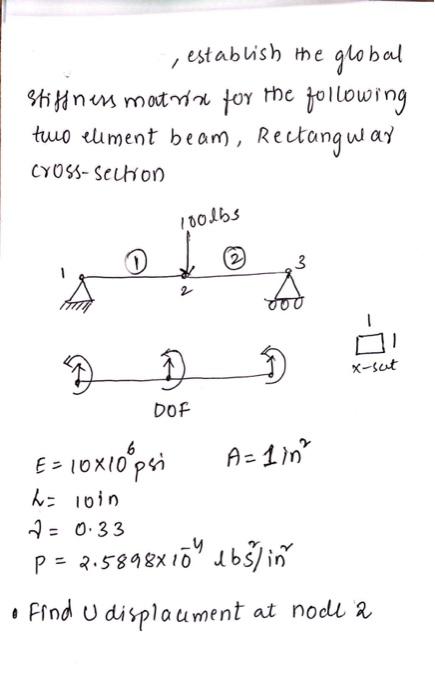 , establish the global
stiffness matrix for the following
two element beam, Rectangular
cross-section
100lbs
1 ① ② 3
2
1
1
x-sect
DOF
E = 10×10⁶ psi A = 1 in²
L = 10in
ν = 0.33
P = 2.5898×10⁻⁴ lbs²/in²
• Find U displacement at node 2